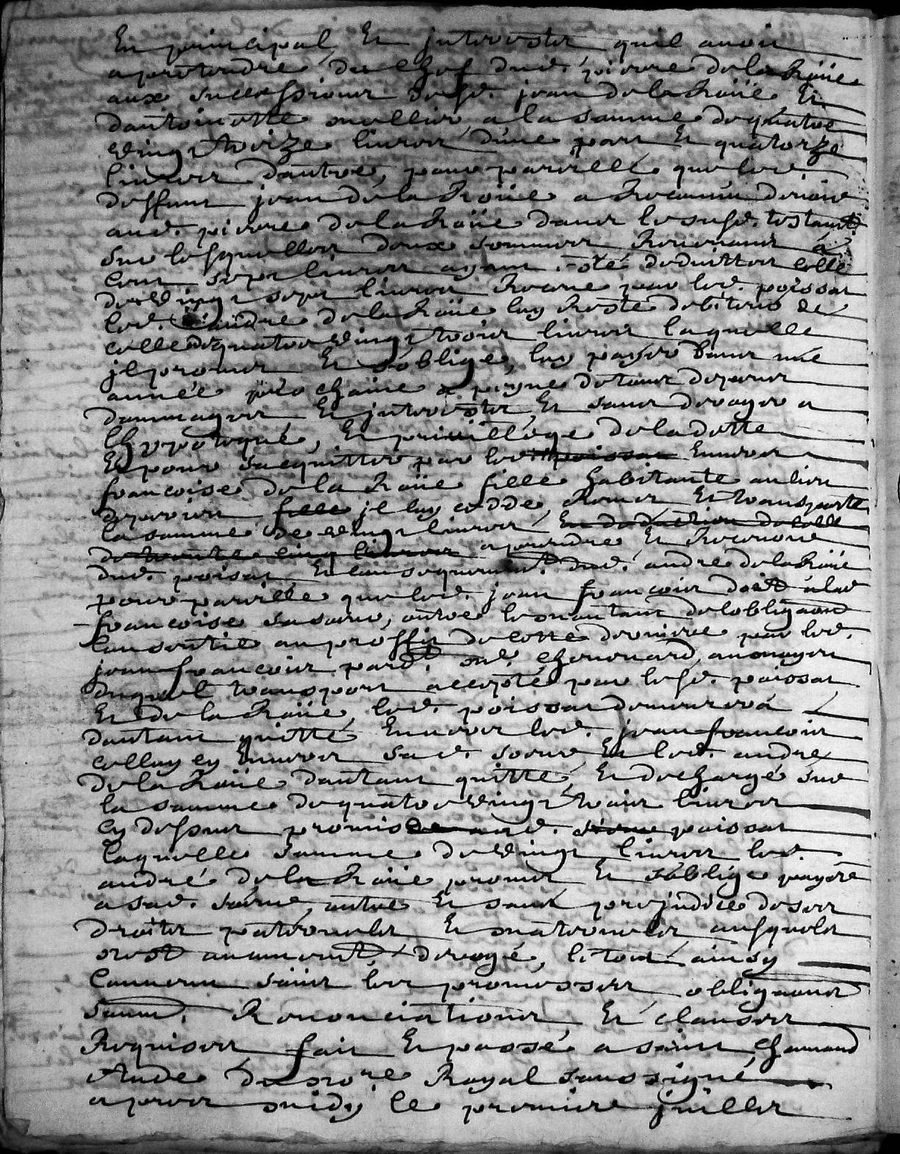 En principal, Et jnterestz quil avoit
a pretendre du chef dud. pierre de la Roüe
aux successions desd. jean de la Roüe Et
dantoinette a la somme de quatre
vingt treize livres dune part Et quatorze
livres dautre, pour pareille que led.
deffunt jean de la Roüe a
aud. pierre de la Roüe dans le susd. testament
sur lesquelles deux sommes Revenant a
Cent sept livres ayant esté deduittes celle
de vingt sept livres Receue par led. poissat
led. andre de la Roüe luy Reste debiteur de
celle de quatre vingt trois livres laquelle
jl promet Et soblige luy payer dans une
année prochaine a peyne de tous despens
dommages Et jnterestz Et sans deroger a
lhypoteque, Et privillege de la dette
Et pour sacquitter par led. poissat Envers
francoise de la Roüe fille habitante au lieu
fille jl luy cedde, Remet Et transporte
la somme de vingt livres En deduction de celle
de trente cinq livres a prendre Et Recevoir
dud. poissat Et consequement dud. andre de la Roüe
pour pareille que led. jean francois doit a lad.
francoise sa sœur, outre le montant de lobligation
consentie au proffit de cette derniere par led.
jean francois pard.t me. chenouard, au moyen
duquel transport accepté par lesd. poissat
Et de la Roüe led. poissat demeurera
dautant quitté Envers led. jean francois
celluy cy Envers sad. sœur Et led. andre
de la Roüe dautant quitté Et dechargé sur
la somme de quatre vingt trois livres
cy dessus promise aud. poissat
laquelle somme de vingt livres led.
andré de la Roüe promet Et soblige payer
a sad. sœur, outre Et sans prejudice de ses
droits paternels Et maternels ausquels
nest aucunement derogé, le tout ainsy
Convenu sous les promesses obligations
soum. Renonciations Et clauses
Requises fait Et passé a saint chamond
Etude du nore Royal soussigné
apres midy le premiere juillet